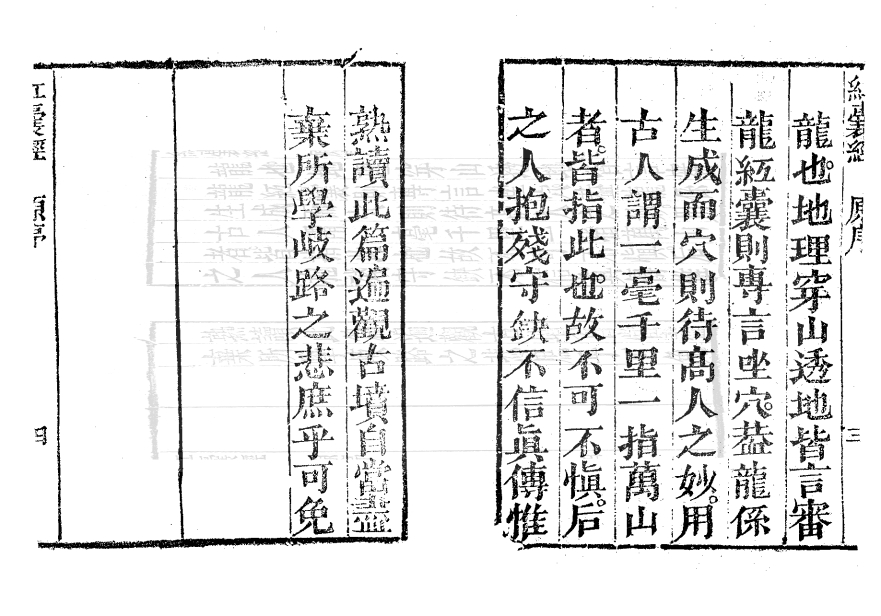 紅囊經 原序 三
龍也。地理穿山透地皆言審
龍紅囊則專言坐穴。葢龍係
生成而穴則待高人之妙。用
古人謂一毫千里一指萬山
者。皆指此也。故不可不愼。后
之人抱殘守缺不信眞傳惟
熟讀此篇遍觀古墳自當盡
棄所學岐路之悲庶乎可免
紅囊經 原序 四